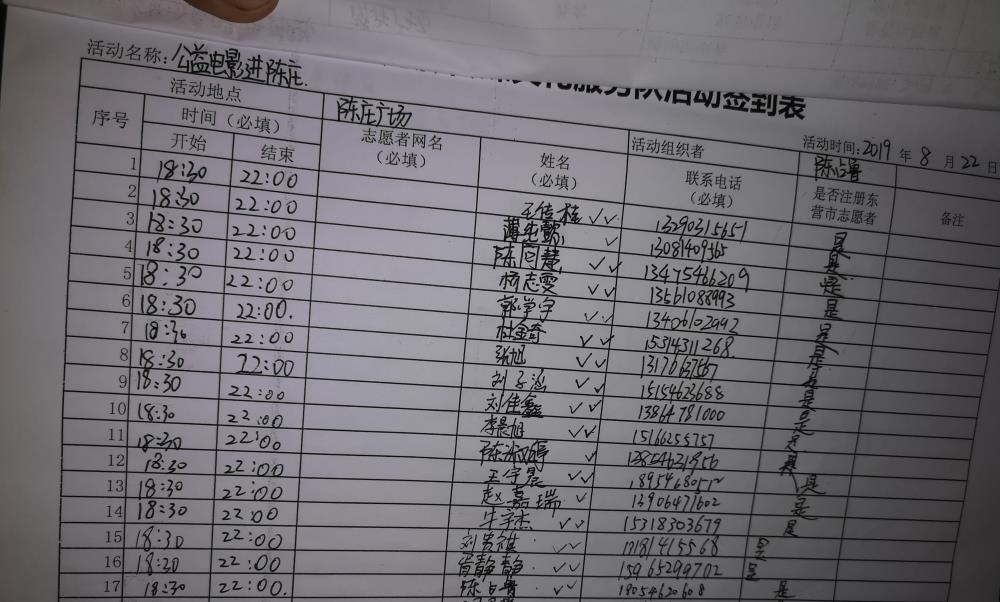 服务队活动签到表
活动名称：公益电影进陈庄.
活动时间：2019 年 8 月 22 日
活动地点 陈庄广场 活动组织者 陈占鲁
序号 时间（必填） 志愿者网名（必填） 姓名（必填） 联系电话（必填） 是否注册东营市志愿者 备注
开始 结束
1 18:30 22:00 王佳桂 ✓✓ 13290315651 是
2 18:30 22:00 ✓ 13081409365 是
3 18:30 22:00 陈同慧 ✓✓ 13475466209 是
4 18:30 22:00 杨志雯 ✓✓ 13561088993 是
5 18:30 22:00 郭学宇 ✓✓ 13406102992
6 18:30 22:00. 杜金奇 ✓✓ 15314311268. 是
7 18:30 22:00 张旭 ✓✓ 是
8 18:30 22:00 刘子涵 ✓✓ 15154623688 是
9 18:30 22:00 刘佳鑫 ✓✓ 13864781000 是
10 18:30 22:00 李晨旭 ✓✓ 15166255757 是
11 18:30 22:00 陈淑婷 ✓✓ 是
12 18:30 22:00 王宇晨 ✓✓ 是
13 18:30 22:00 赵嘉瑞 ✓ 13906471602 是
14 18:30 22:00 牛宇杰 ✓✓ 15318303679 是
15 18:30 22:00 ✓✓ 是
16 18:30 22:00 胥静静 ✓✓ 15965299702 是
17 18:30 22:00. 陈占鲁 ✓✓ 19054620608 是